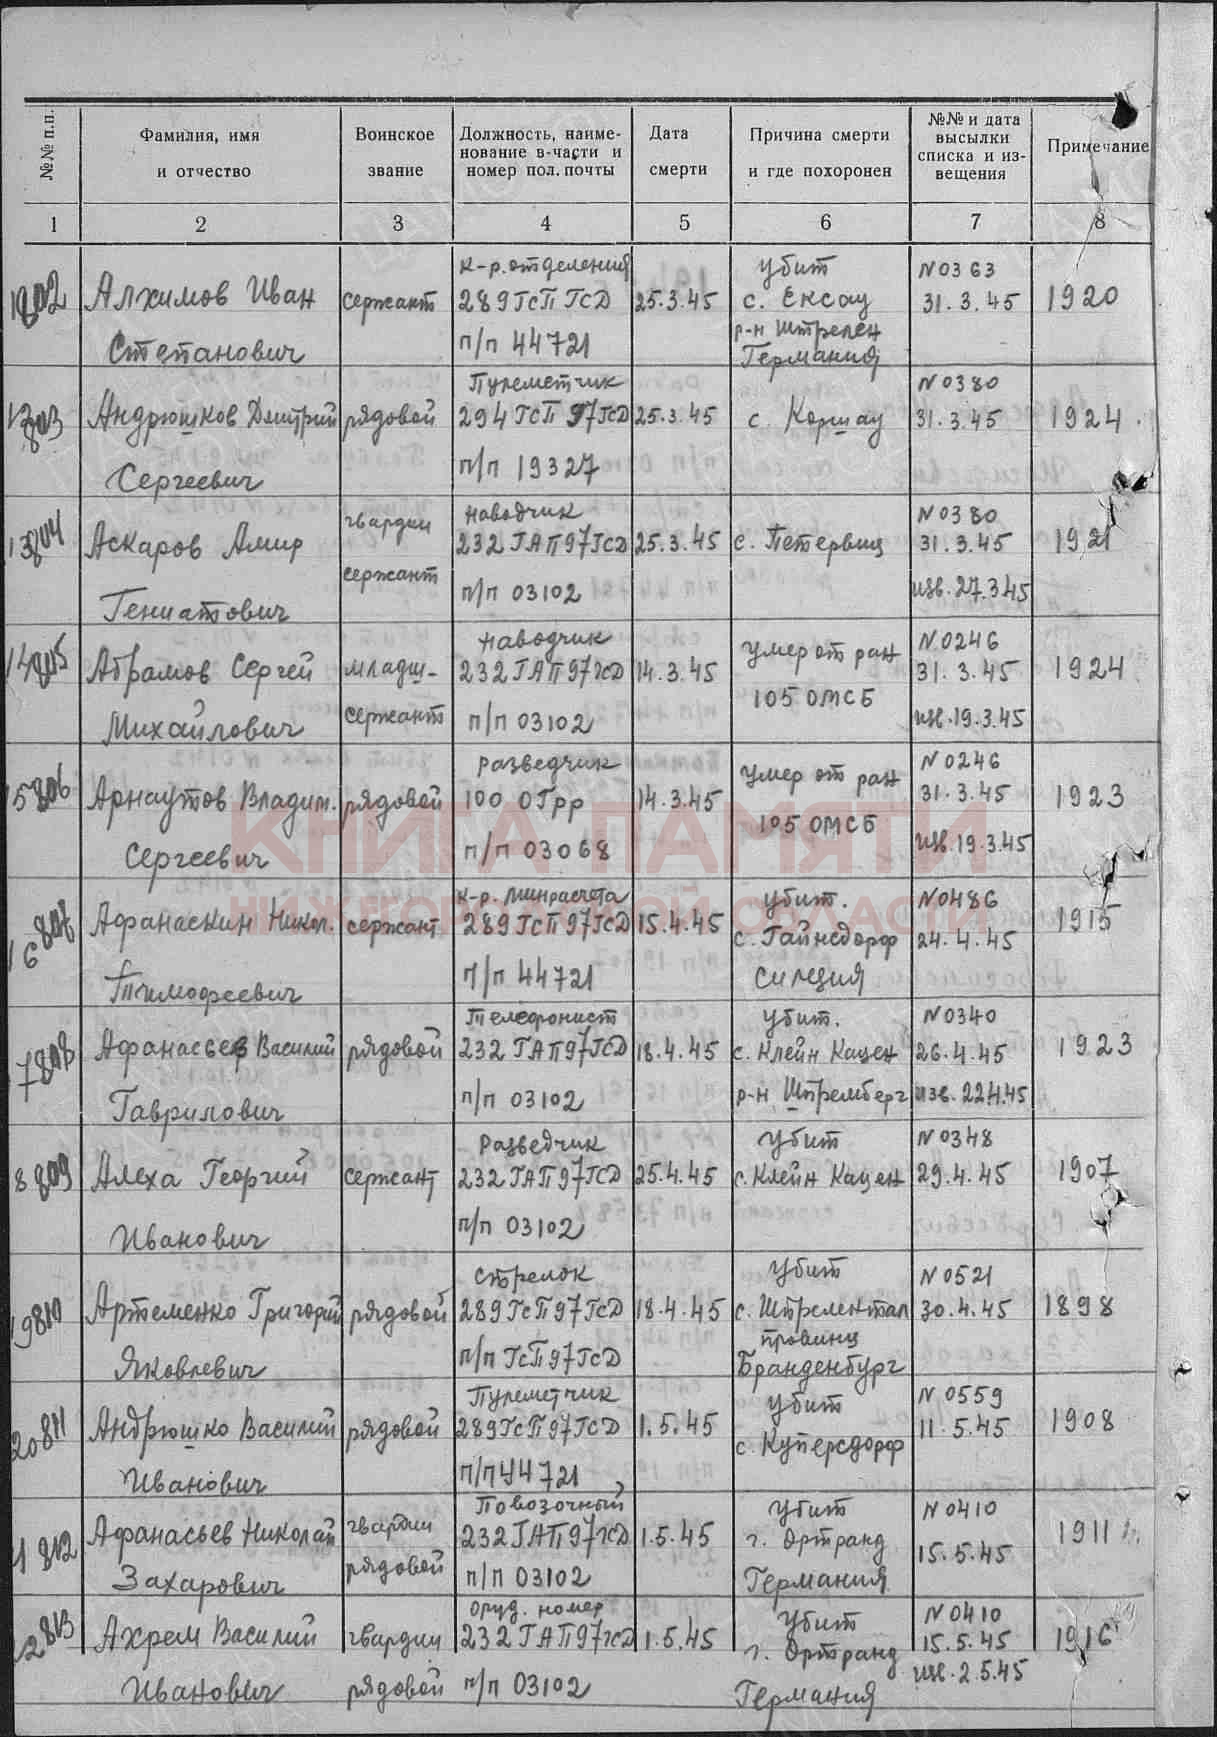 №№ п.п.
Фамилия, имя
и отчество
Воинское
звание
Должность, наиме-
нование в-части и
номер пол. почты
Дата
смерти
Причина смерти
и где похоронен
№№ и дата
высылки
списка и из-
вещения
Примечание
1 2 3 4 5 6 7 8
802 Алхимов Иван
Степанович
сержант
к-р. отделения
289 ГсП ГсД
п/п 44721
25.3.45
убит
с. Ексау
р-н Штрелен
Германия
N0363
31.3.45
1920
803 Андрюшков Дмитрий
Сергеевич
рядовой
Пулеметчик
294 ГсП 97 ГсД
п/п 19327
25.3.45
с. Коршау
N0380
31.3.45
1924
13 804 Аскаров Амир
Гениатович
гвардии
сержант
наводчик
232 ГАП 97 ГсД
п/п 03102
25.3.45
с. Петервиц
N0380
31.3.45
изв. 27.3.45
1921
14 805 Абрамов Сергей
Михайлович
младш-
сержант
наводчик
232 ГАП 97 ГсД
п/п 03102
14.3.45
умер от ран
105 ОМСБ
N0246
31.3.45
изв. 19.3.45
1924
15 806 Арнаутов Владим.
Сергеевич
рядовой
разведчик
100 ОГрр
п/п 03068
14.3.45
умер от ран
105 ОМСБ
N0246
31.3.45
изв. 19.3.45
1923
КНИГА ПАМЯТИ
НИЖЕГОРОДСКОЙ ОБЛАСТИ
16 807 Афанаскин Никол.
Тимофеевич
сержант
к-р. минрасчета
289 ГсП 97 ГсД
п/п 44721
15.4.45
убит.
с. Гайнсдорф
силезия
N0486
24.4.45
1915
17 808 Афанасьев Василий
Гаврилович
рядовой
Телефонист
232 ГАП 97 ГсД
п/п 03102
18.4.45
убит.
с. Клейн Кацен
р-н Штремберг
N0340
26.4.45
изв. 22.4.45
1923
8 809 Алеха Георгий
Иванович
сержант
Разведчик
232 ГАП 97 ГсД
п/п 03102
25.4.45
убит
с. Клейн Кацен
N0348
29.4.45
1907
19 810 Артеменко Григорий
Яковлевич
рядовой
стрелок
289 ГсП 97 ГсД
п/п ГсП 97 ГсД
18.4.45
убит
с. Штрелентал
провинц
Бранденбург
N0521
30.4.45
1898
20 811 Андрюшко Василий
Иванович
рядовой
Пулеметчик
289 ГсП 97 ГсД
п/п 44721
1.5.45
убит
с. Куперсдорф
N0559
11.5.45
1908
1 812 Афанасьев Николай
Захарович
гвардии
рядовой
Повозочный
232 ГАП 97 ГсД
п/п 03102
1.5.45
убит
г. Ортранд
Германия
N0410
15.5.45
1911
2 813 Ахрем Василий
Иванович
гвардии
рядовой
Оруд. номер
232 ГАП 97 ГсД
п/п 03102
1.5.45
убит
г. Ортранд
Германия
N0410
15.5.45
изв. 2.5.45
1916